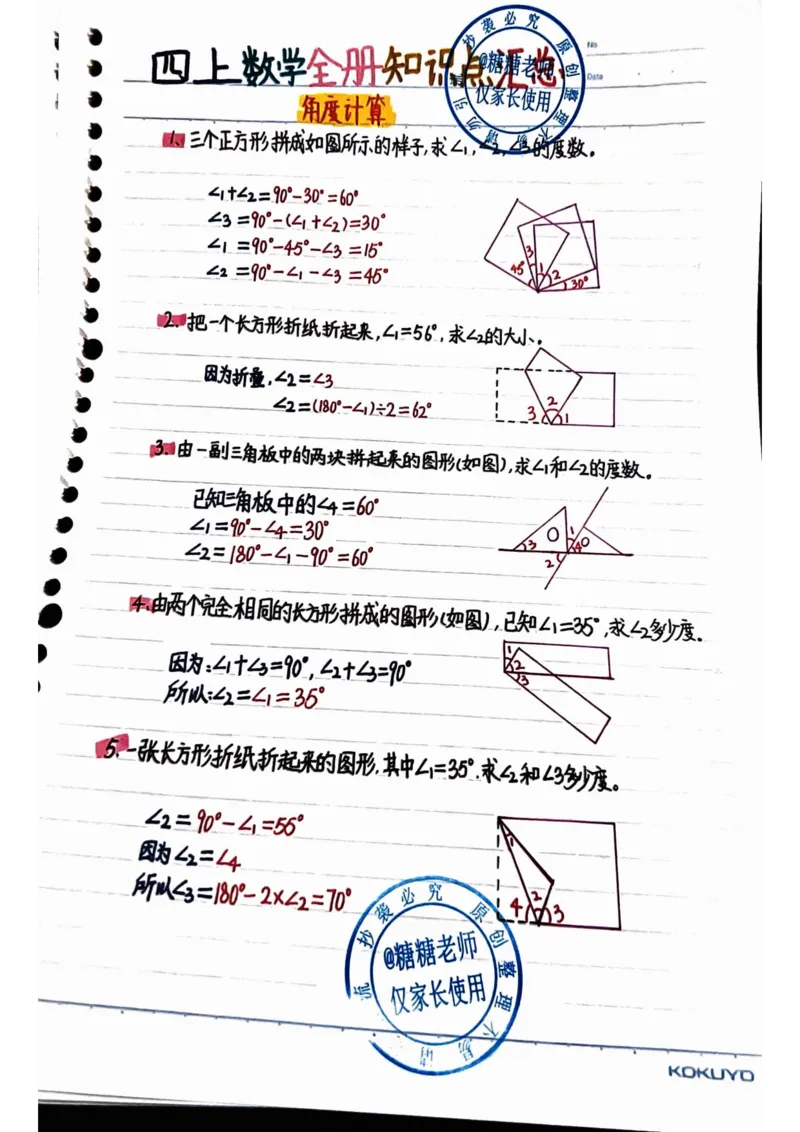 四上数学全册知识点汇总
No.
Date
抄袭必究 原创整理 不易 请勿引
@糖糖老师
仅家长使用
角度计算
1、三个正方形拼成如图所示的样子,求∠1,∠2,∠3的度数。
∠1+∠2=90°-30°=60°
∠3=90°-(∠1+∠2)=30°
∠1=90°-45°-∠3=15°
∠2=90°-∠1-∠3=45°
3 1 2
45° 30°
2.把一个长方形折纸折起来,∠1=56°,求∠2的大小。
因为折叠,∠2=∠3
∠2=(180°-∠1)÷2=62°
2
3 1
3.由一副三角板中的两块拼起来的图形(如图),求∠1和∠2的度数。
已知三角板中的∠4=60°
∠1=90°-∠4=30°
∠2=180°-∠1-90°=60°
O 1
3 4 O
2
4.由两个完全相同的长方形拼成的图形(如图),已知∠1=35°,求∠2多少度。
因为:∠1+∠3=90°,∠2+∠3=90°
所以:∠2=∠1=35°
1
2
3
5.一张长方形折纸折起来的图形,其中∠1=35°.求∠2和∠3多少度。
∠2=90°-∠1=55°
因为∠2=∠4
所以∠3=180°-2×∠2=70°
1
2
4 3
抄袭必究 原创整理 不易 请 流
@糖糖老师
仅家长使用
KOKUYO